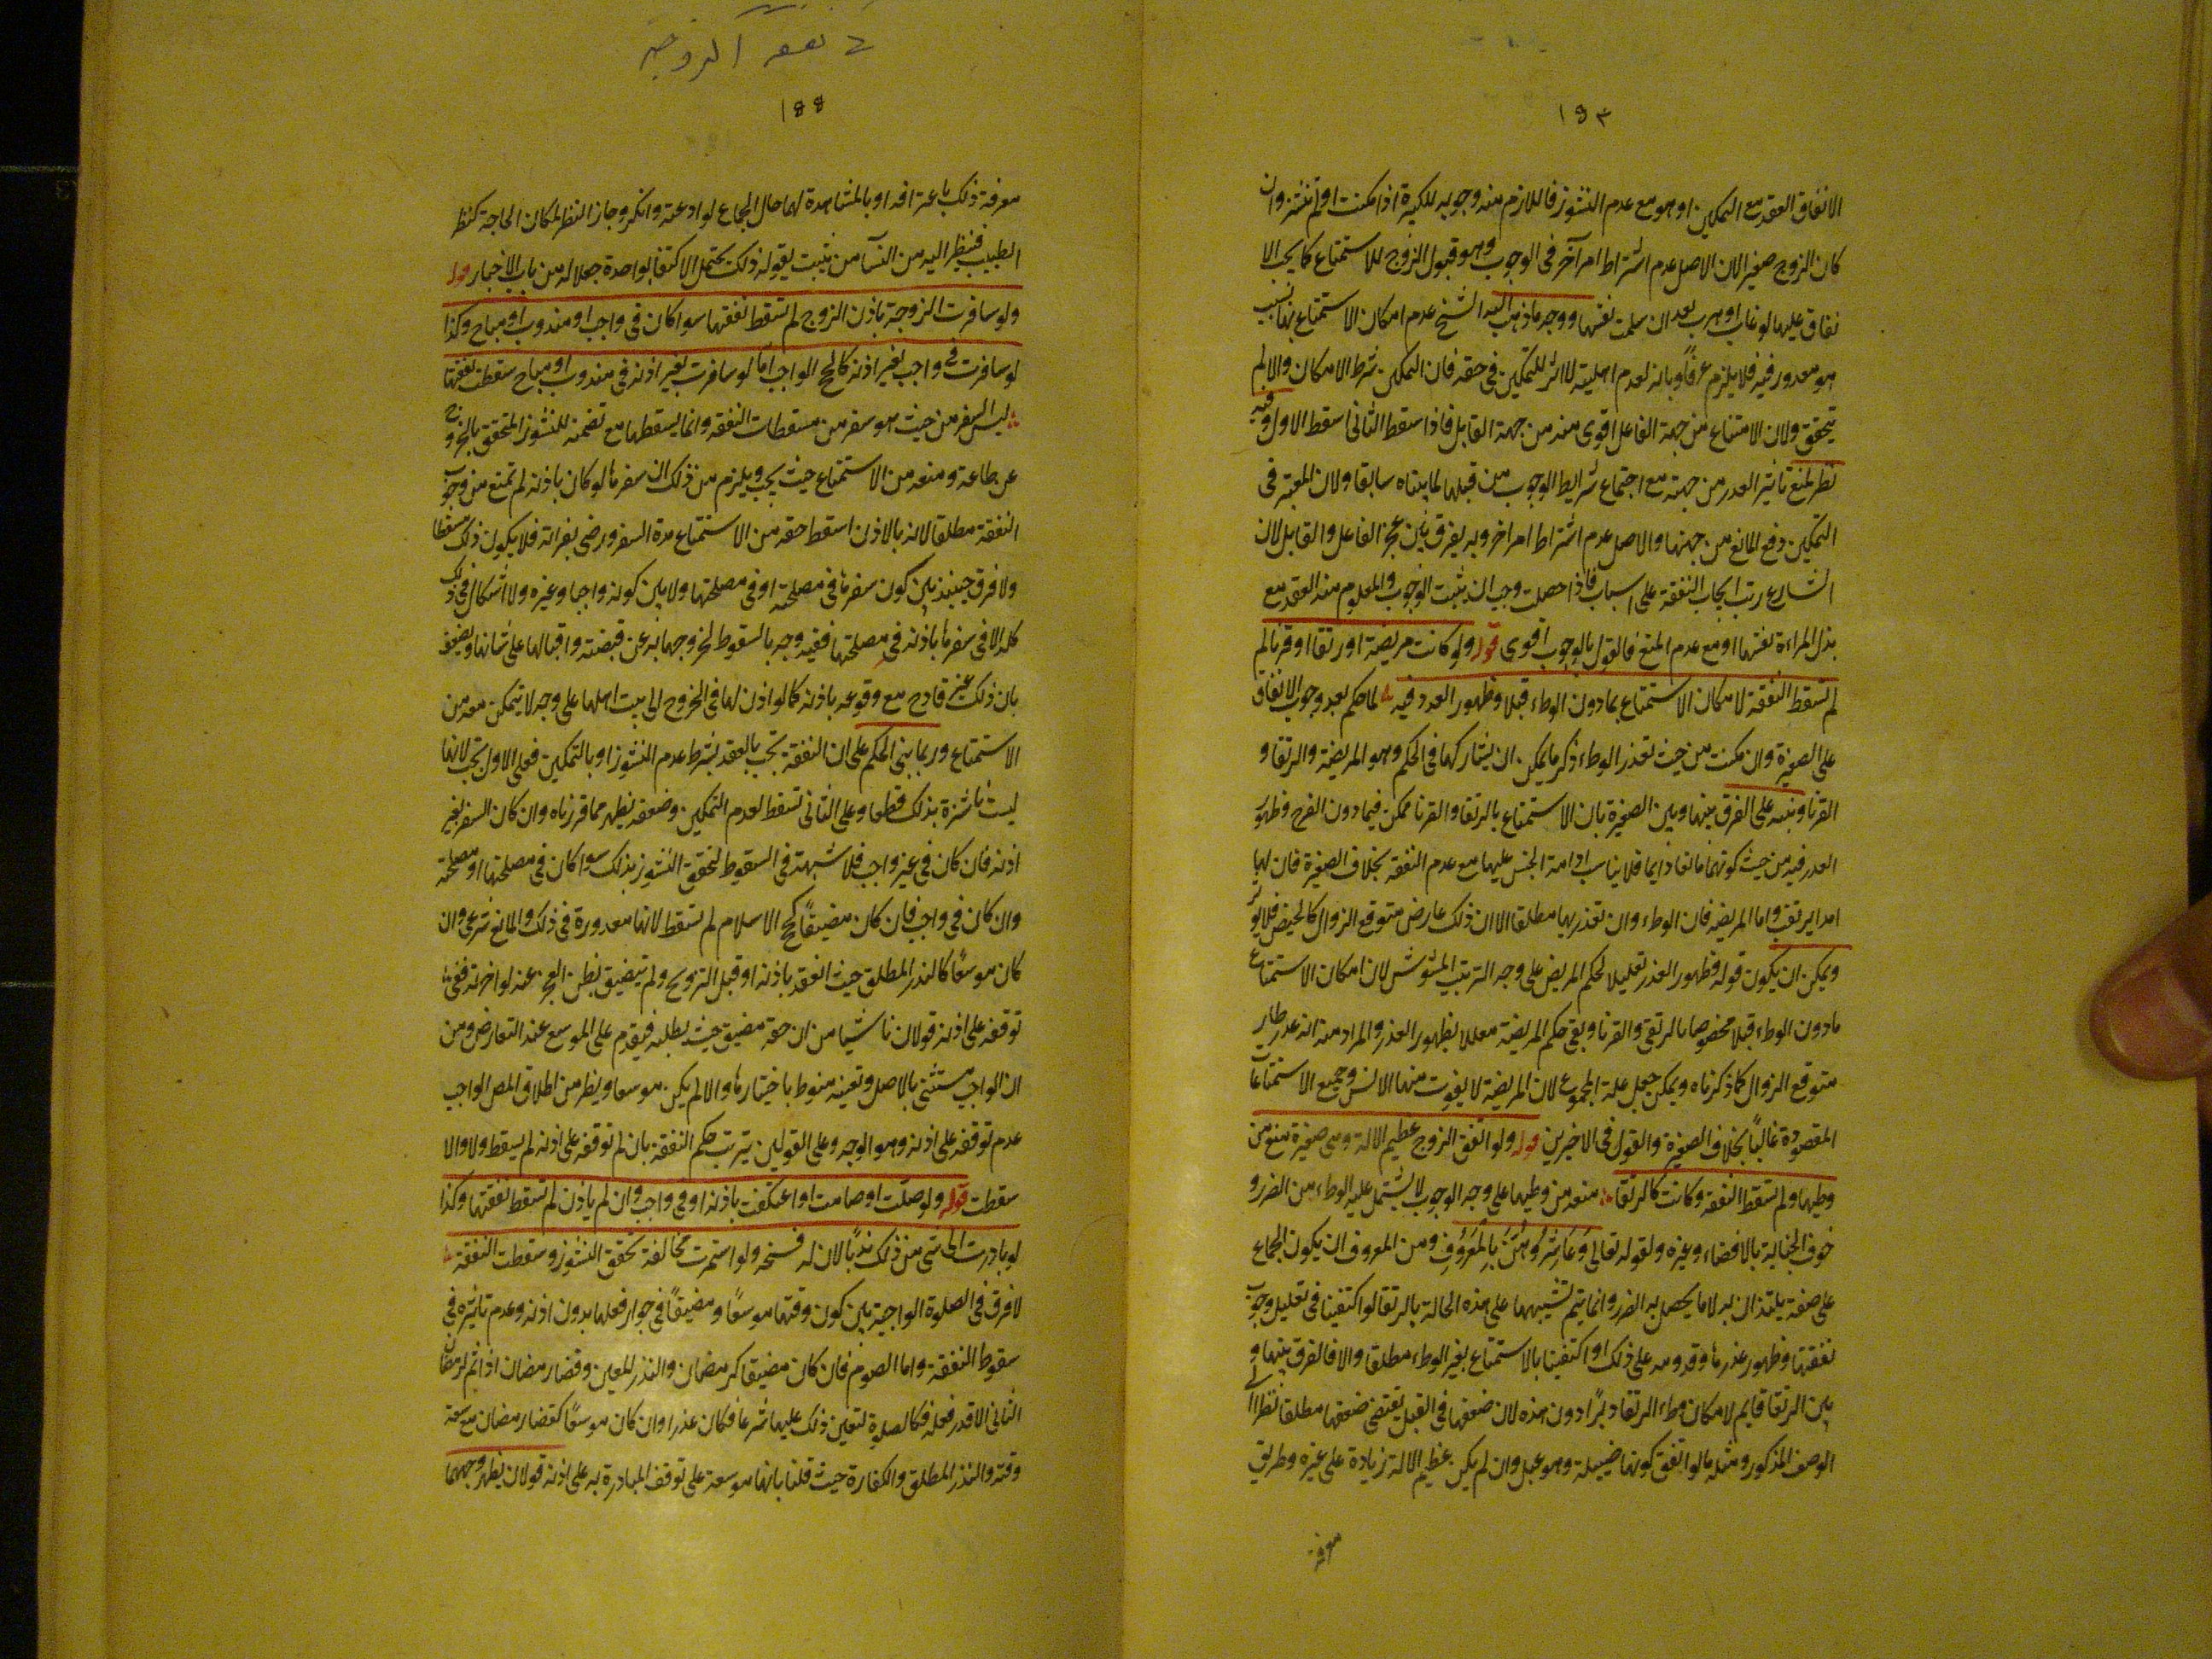 ١٥٤
الانفاق العقد مع التمكين او هو مع عدم النشوز فاللازم منه وجوبه للكبيرة اذا مكنت او لم تنشز وان
كان الزوج صغيرا لان الاصل عدم اشتراط امر آخر فى الوجوب وهو قبول الزوج للاستمتاع كما يجب الا
نفاق عليها لو غاب او هرب بعد ان سلمت نفسها ووجه ما ذهب اليه الشيخ عدم امكان الاستمتاع بها لسبب
هو معذور فيه فلا يلزم عرفًا وبانه لعدم اهليته لا اثر للتمكين فى حقه فان التمكين شرط الامكان والا لم
يتحقق ولان الامتناع من جهة الفاعل اقوى منه من جهة القابل فاذا سقط الثانى اسقط الاول وفيه
نظر لمنع تاثير العذر من جهته مع اجتماع شرايط الوجوب من قبلها لما بيناه سابقا ولان المعتبر فى
التمكين رفع المانع من جهتها والاصل عدم اشتراط امر اخر وبه يفرق بين عجز الفاعل والقابل لان
الشارع رتب ايجاب النفقة على اسباب فاذا حصلت وجب ان يثبت الوجوب والمعلوم منه العقد مع
بذل المراءة نفسها او مع عدم المنع فالقول بالوجوب اقوى قوله ولو كانت مريضة او رتقا او قرنا لم
لم تسقط النفقة لامكان الاستمتاع بما دون الوطء قبلا وظهور العذر فيه لما حكم بعد وجوب الانفاق
على الصغيرة وان مكنت من حيث تعذر الوطء ذكر ما يمكن ان يشاركها فى الحكم وهو المريضة والرتقاء و
القرنا ونبه على الفرق بينها وبين الصغيرة بان الاستمتاع بالرتقا والقرنا ممكن فيما دون الفرج وظهو
العذر فيه من حيث كونهما مانعا دايما فلا يناسب ادامة الحبس عليهما مع عدم النفقة بخلاف الصغيرة فان لها
امدا يرتقب واما المريضه فان الوطء وان تعذر بها مطلقا الا ان ذلك عارض متوقع الزوال كالحيض فلا يوثر
ويمكن ان يكون قوله وظهور العذر تعليلا لحكم المريض على وجه الترتيب المشوش لان امكان الاستمتاع
مادون الوطء قبلا مخصوصا بالرتقى والقرنا وبقى حكم المريضة معللا بظهور العذر والمراد منه انه عذر طار
متوقع الزوال كما ذكرناه ويمكن جعل علة المجموع لان المريضة لا يفوت منها الانس وجميع الاستمتاعات
المقصودة غالبًا بخلاف الصغيرة والقول فى الاخيرين قوله ولو اتفق الزوج عظيم الالة وهى صغيرة منع من
وطيها ولم تسقط النفقة وكانت كالرتقا منعه من وطيها على وجه الوجوب لا يشتمل عليه الوطء من الضرر و
خوف الجناية بالافضاء وغيره ولقوله تعالى وَعَاشِرُوهُنَّ بِالْمَعْرُوفِ ومن المعروف ان يكون الجماع
على صفة يلتذان به لا ما يحصل به الضرر وانما يتم تشبيهها على هذه الحالة بالرتقا لو اكتفينا فى تعليل وجوب
نفقتها وظهور عذرها وقدومه على ذلك او اكتفينا بالاستمتاع بغير الوطء مطلقا والا فالفرق بينها و
بين الرتقا قايم لامكان وطء الرتقا دبرًا دون هذه لان ضعفها فى القبل يقتضى ضعفها مطلقا نظرا الى
الوصف المذكور ومثله ما لو اتفق كونها ضئيلة وهو عبل وان لم يكن عظيم الالة زيادة على غيره وطريق
معرفة
نفقة الزوجة
١٥٥
معرفة ذلك باعترافه او بالمشاهدة لهما حال الجماع لو ادعته وانكر وجاز النظر لمكان الحاجة كنظر
الطبيب فينظر اليه من النسآ من يثبت بقوله ذلك يحتمل الاكتفا بواحدة جعلا له من باب الاخبار قوله
ولو سافرت الزوجة باذن الزوج لم تسقط نفقتها سوا كان فى واجب او مندوب او مباح وكذا
لو سافرت فى واجب بغير اذنه كالحج الواجب اما لو سافرت بغير اذنه فى مندوب او مباح سقطت نفقتها
ليس السفر من حيث هو سفر من مسقطات النفقه وانما يسقطها مع تضمنه للنشوز المتحقق بالخروج
عن طاعته ومنعه من الاستمتاع حيث يجب ويلزم من ذلك ان سفرها لو كان باذنه لم تمنع من وجوب
النفقة مطلقا لانه بالاذن اسقط حقه من الاستمتاع مدة السفر ورضى بفراته فلا يكون ذلك مسقطا
ولا فرق حينئذ بين كون سفرها فى مصلحته او فى مصلحتها ولا بين كونه واجبا وغيره ولا اشكال فى ذلك
كله الا فى سفرها باذنه فى مصلحتها ففيه وجه بالسقوط لخروجها به عن قبضته واقبالها على شانها ويضعف
بان ذلك غير قادح مع وقوعه باذنه كما لو اذن لها فى الخروج الى بيت اهلها على وجه لا يتمكن معه من
الاستمتاع وربما بنى الحكم على ان النفقة تجب بالعقد بشرط عدم النشوز او بالتمكين فعلى الاول تجب لانها
ليست ناشزة بذلك قطعا وعلى الثانى تسقط لعدم التمكين وضعفه يظهر مما قررناه وان كان السفر بغير
اذنه فان كان فى غير واجب فلا شبهة فى السقوط لتحقق النشوز بذلك سوا كان فى مصلحتها او مصلحته
وان كان فى واجب فان كان مضيقًا كحج الاسلام لم تسقط لانها معذورة فى ذلك والمانع شرعى وان
كان موسعًا كالنذر المطلق حيث انعقد باذنه او قبل التزويج ولم يتضيق بظن العجز عنه لو اخرته ففى
توقفه على اذنه قولان ناشيا من ان حقه مضيق حيث يطلبه فيقدم على الموسع عند التعارض ومن
ان الواجب مستثنى بالاصل وتعينه منوط باختيارها والا لم يكن موسعا ويظهر من اطلاق المص الواجب
عدم توقفه على اذنه وهو الوجه وعلى القولين يترتب حكم النفقة بان لم توقفه على اذنه لم يسقط ولا والا
سقطت قوله ولو صلّت او صامت او اعتكفت باذنه او فى واجب وان لم ياذن لم تسقط نفقتها وكذا
لو بادرت الى شى من ذلك ندبًا لان له فسخه ولو استمرت مخالفة تحقق النشوز وسقطت النفقة
لا فرق فى الصلوة الواجبة بين كون وقتها موسعًا ومضيقًا فى جواز فعلها بدون اذنه وعدم تاثيره فى
سقوط النفقة واما الصوم فان كان مضيقا كرمضان والنذر المعين وقضا رمضان اذا لم
الثانى الا قدر فعله فكالصلوة لتعين ذلك عليها شرعا فكان عذرا وان كان موسعًا كقضا رمضان مع سعة
وقته والنذر المطلق والكفارة حيث قلنا بانها موسعة على توقف المبادرة به على اذنه قولان يظهر وجههما